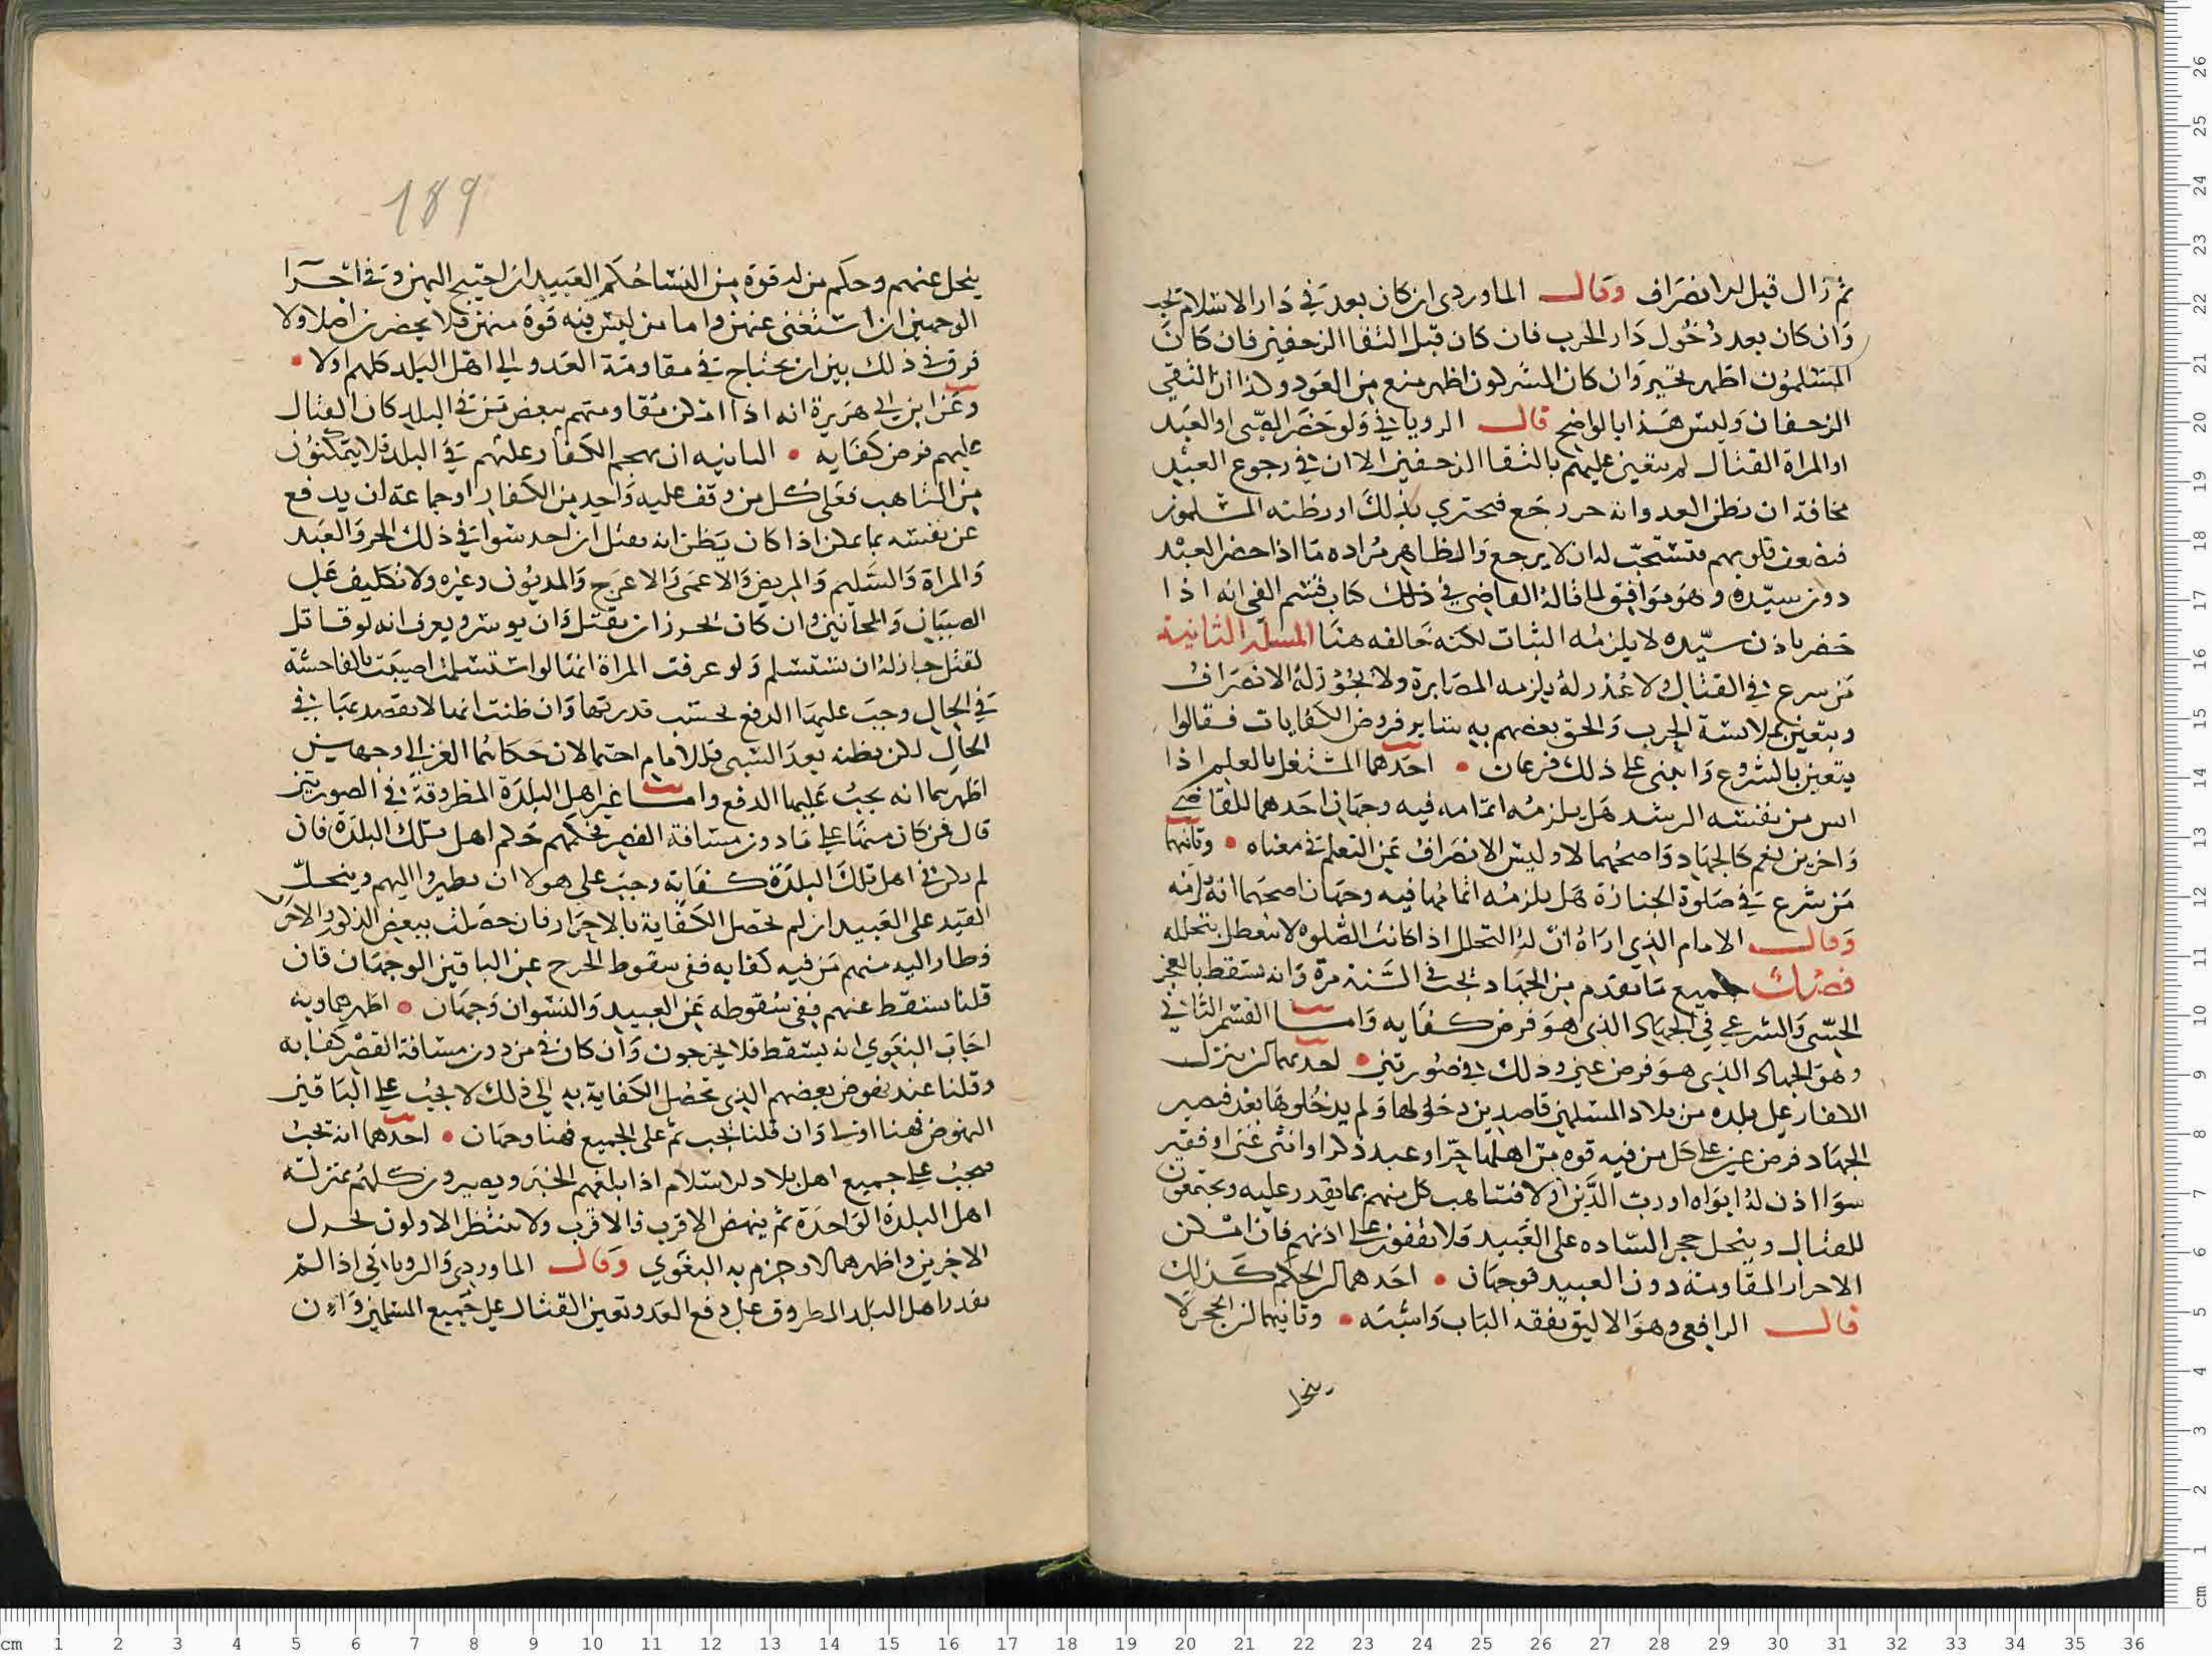 ثم زال قبل الانصراف وقال الماوردي ان كان بعد في دار الاسلام تخير
وان كان بعد دخول دار الحرب فان كان قبل التقا الزحفين فان كان
المسلمون اظهر تخير وان كان المشركون اظهر منع من العود وكذا ان التقى
الزحفان وليس هذا بالواضح قال الروياني ولو حضر الصبي او العبد
او المراة القتال لم يتعين عليهم بالتقا الزحفين الا ان في رجوع العبد
مخافة ان يظن العدو انه حر رجع فيجتري بذلك او يظنه المسلمون
فتضعف قلوبهم فتستحب له ان لا يرجع والظاهر مراده ما اذا حضر العبد
دون سيده وهو موافق لما قاله القاضي في ذلك كتاب قسم الفي انه اذا
حضر باذن سيده لا يلزمه الثبات لكنه خالفه هنا المسلة الثانية
من سرع في القتال ولا عذر له يلزمه المصابرة ولا يجوز له الانصراف
ويتعين بملابسة الحرب والحق بعضهم به سائر فروض الكفايات فقالوا
يتعين بالشروع وابتنى على ذلك فرعان احدهما المشتغل بالعلم اذا
انس من نفسه الرشد هل يلزمه اتمامه فيه وجهان احدهما للقاضي
واخرين نعم كالجهاد واصحهما لا وليس الانصراف عن التعلم في معناه وثانيهما
من شرع في صلوة الجنازة هل يلزمه اتمامها فيه وجهان اصحهما انه لزمه
وقال الامام الذي اراه ان له التحلل اذا كانت الصلوة لا تتعطل بتحلله
فصل جميع ما تقدم من الجهاد يجب في السنة مرة وانه يسقط بالعجز
الحسي والشرعي في الجهاد الذي هو فرض كفايه واما القسم الثاني
وهو الجهاد الذي هو فرض عين وذلك في صورتين احديهما ان ينزل
الكفار على بلده من بلاد المسلمين قاصدين دخولها ولم يدخلوها بعد فيصير
الجهاد فرض عين على كل من فيه قوة من اهلها حرا او عبد ذكرا او انثى غني او فقير
سوا اذن له ابواه او رب الدين او لا فيتاهب كل منهم بما يقدر عليه ويجتمعون
للقتال وينحل حجر الساده على العبيد فلا يقفون على اذنهم فان امكن
الاحرار المقاومة دون العبيد فوجهان احدهما ان الحكم كذلك
قال الرافعي وهو الاليق بفقه الباب واشبه وثانيهما ان الحجر لا
ينحل
189
ينحل عنهم وحكم من له قوة من النسا حكم العبيد ان احتيج اليهن وفي اجرا
الوجهين ان استغنى عنهن واما من ليس فيه قوة منهن فلا يحضرن اصلا ولا
فرق في ذلك بين ان يحتاج في مقاومة العدو الى اهل البلد كلهم اولا
وعن ابن ابي هريرة انه اذا امكن مقاومتهم ببعض من في البلد كان القتال
عليهم فرض كفايه الثانيه ان يهجم الكفار عليهم في البلد فلا يتمكنون
من التاهب فعلى كل من وقف عليه واحد من الكفار او جماعة ان يدفع
عن نفسه بما يمكن اذا كان يظن انه يقتل ان احد سوا في ذلك الحر والعبد
والمراة والسليم والمريض والاعمى والاعرج والمديون وغيره ولا تكليف على
الصبيان والمجانين وان كان يجوز ان يقتل وان يوسر ويعرف انه لو قاتل
لقتل جاز له ان يستسلم ولو عرفت المراة انها لو استسلمت اصيبت بالفاحشة
في الحال وجب عليها الدفع بحسب قدرتها وان ظنت انها لا تقصد بها في
الحال لكن يظنه بعد السبي فللامام احتمالان حكاهما الغزالي وجهين
اظهرهما انه يجب عليها الدفع واما غير اهل البلدة المطروقة في الصورتين
قال فمن كان منها على ما دون مسافة القصر فحكمهم حكم اهل تلك البلدة فان
لم يكن في اهل تلك البلدة كفاية وجب على هولا ان يطيروا اليهم وينحل
القيد على العبيد ان لم تحصل الكفاية بالاحرار فان حصلت ببعض الذكور الاحرار
وطار اليه منهم من فيه كفايه ففي سقوط الحرج عن الباقين الوجهان فان
قلنا سقط عنهم ففي سقوطه عن العبيد والنسوان وجهان اظهرهما وبه
اجاب البغوي انه يسقط فلا يخرجون وان كان في من دون مسافة القصر كفايه
وقلنا عند نهوض بعضهم الذي تحصل الكفاية به الى ذلك لا يجب على الباقين
النهوض فهنا اولى وان قلنا يجب ثم على الجميع فهنا وجهان احدهما انه يجب
فيجب على جميع اهل بلاد الاسلام اذا بلغهم الخبر ويصيرون كلهم بمنزلة
اهل البلدة الواحدة ثم ينهض الاقرب فالاقرب ولا ينتظر الاولون تحرك
الاخرين واظهرهما لا وجزم به البغوي وقال الماوردي والروياني اذا لم
يقدر اهل البلد المطروق على دفع العدو تعين القتال على جميع المسلمين وان